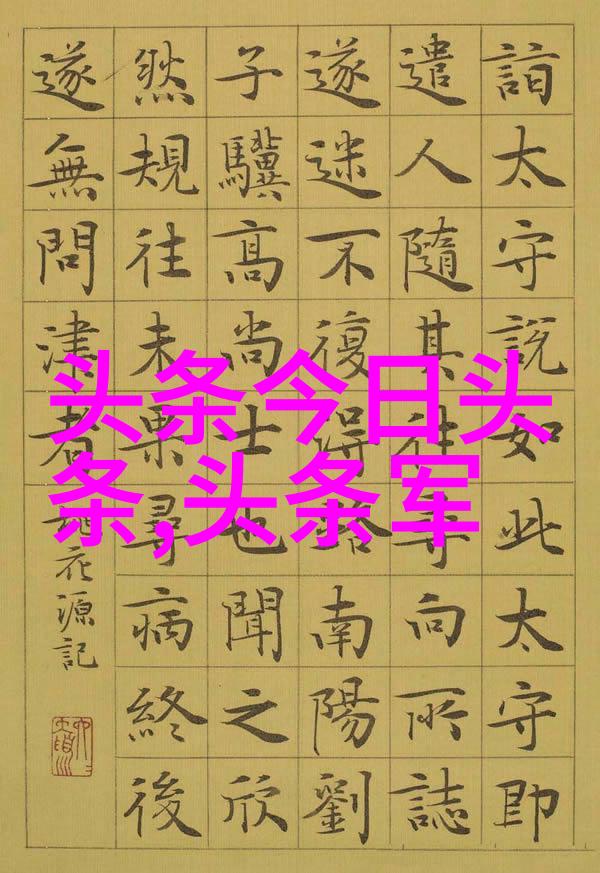 詣太守說如此太守即
遣人隨其往尋向所誌
遂迷不復得路南陽劉
子驥高尚士也聞之欣
然規往未果尋病終後
遂無問津者
桃花源記
头条今日头
条,头条军